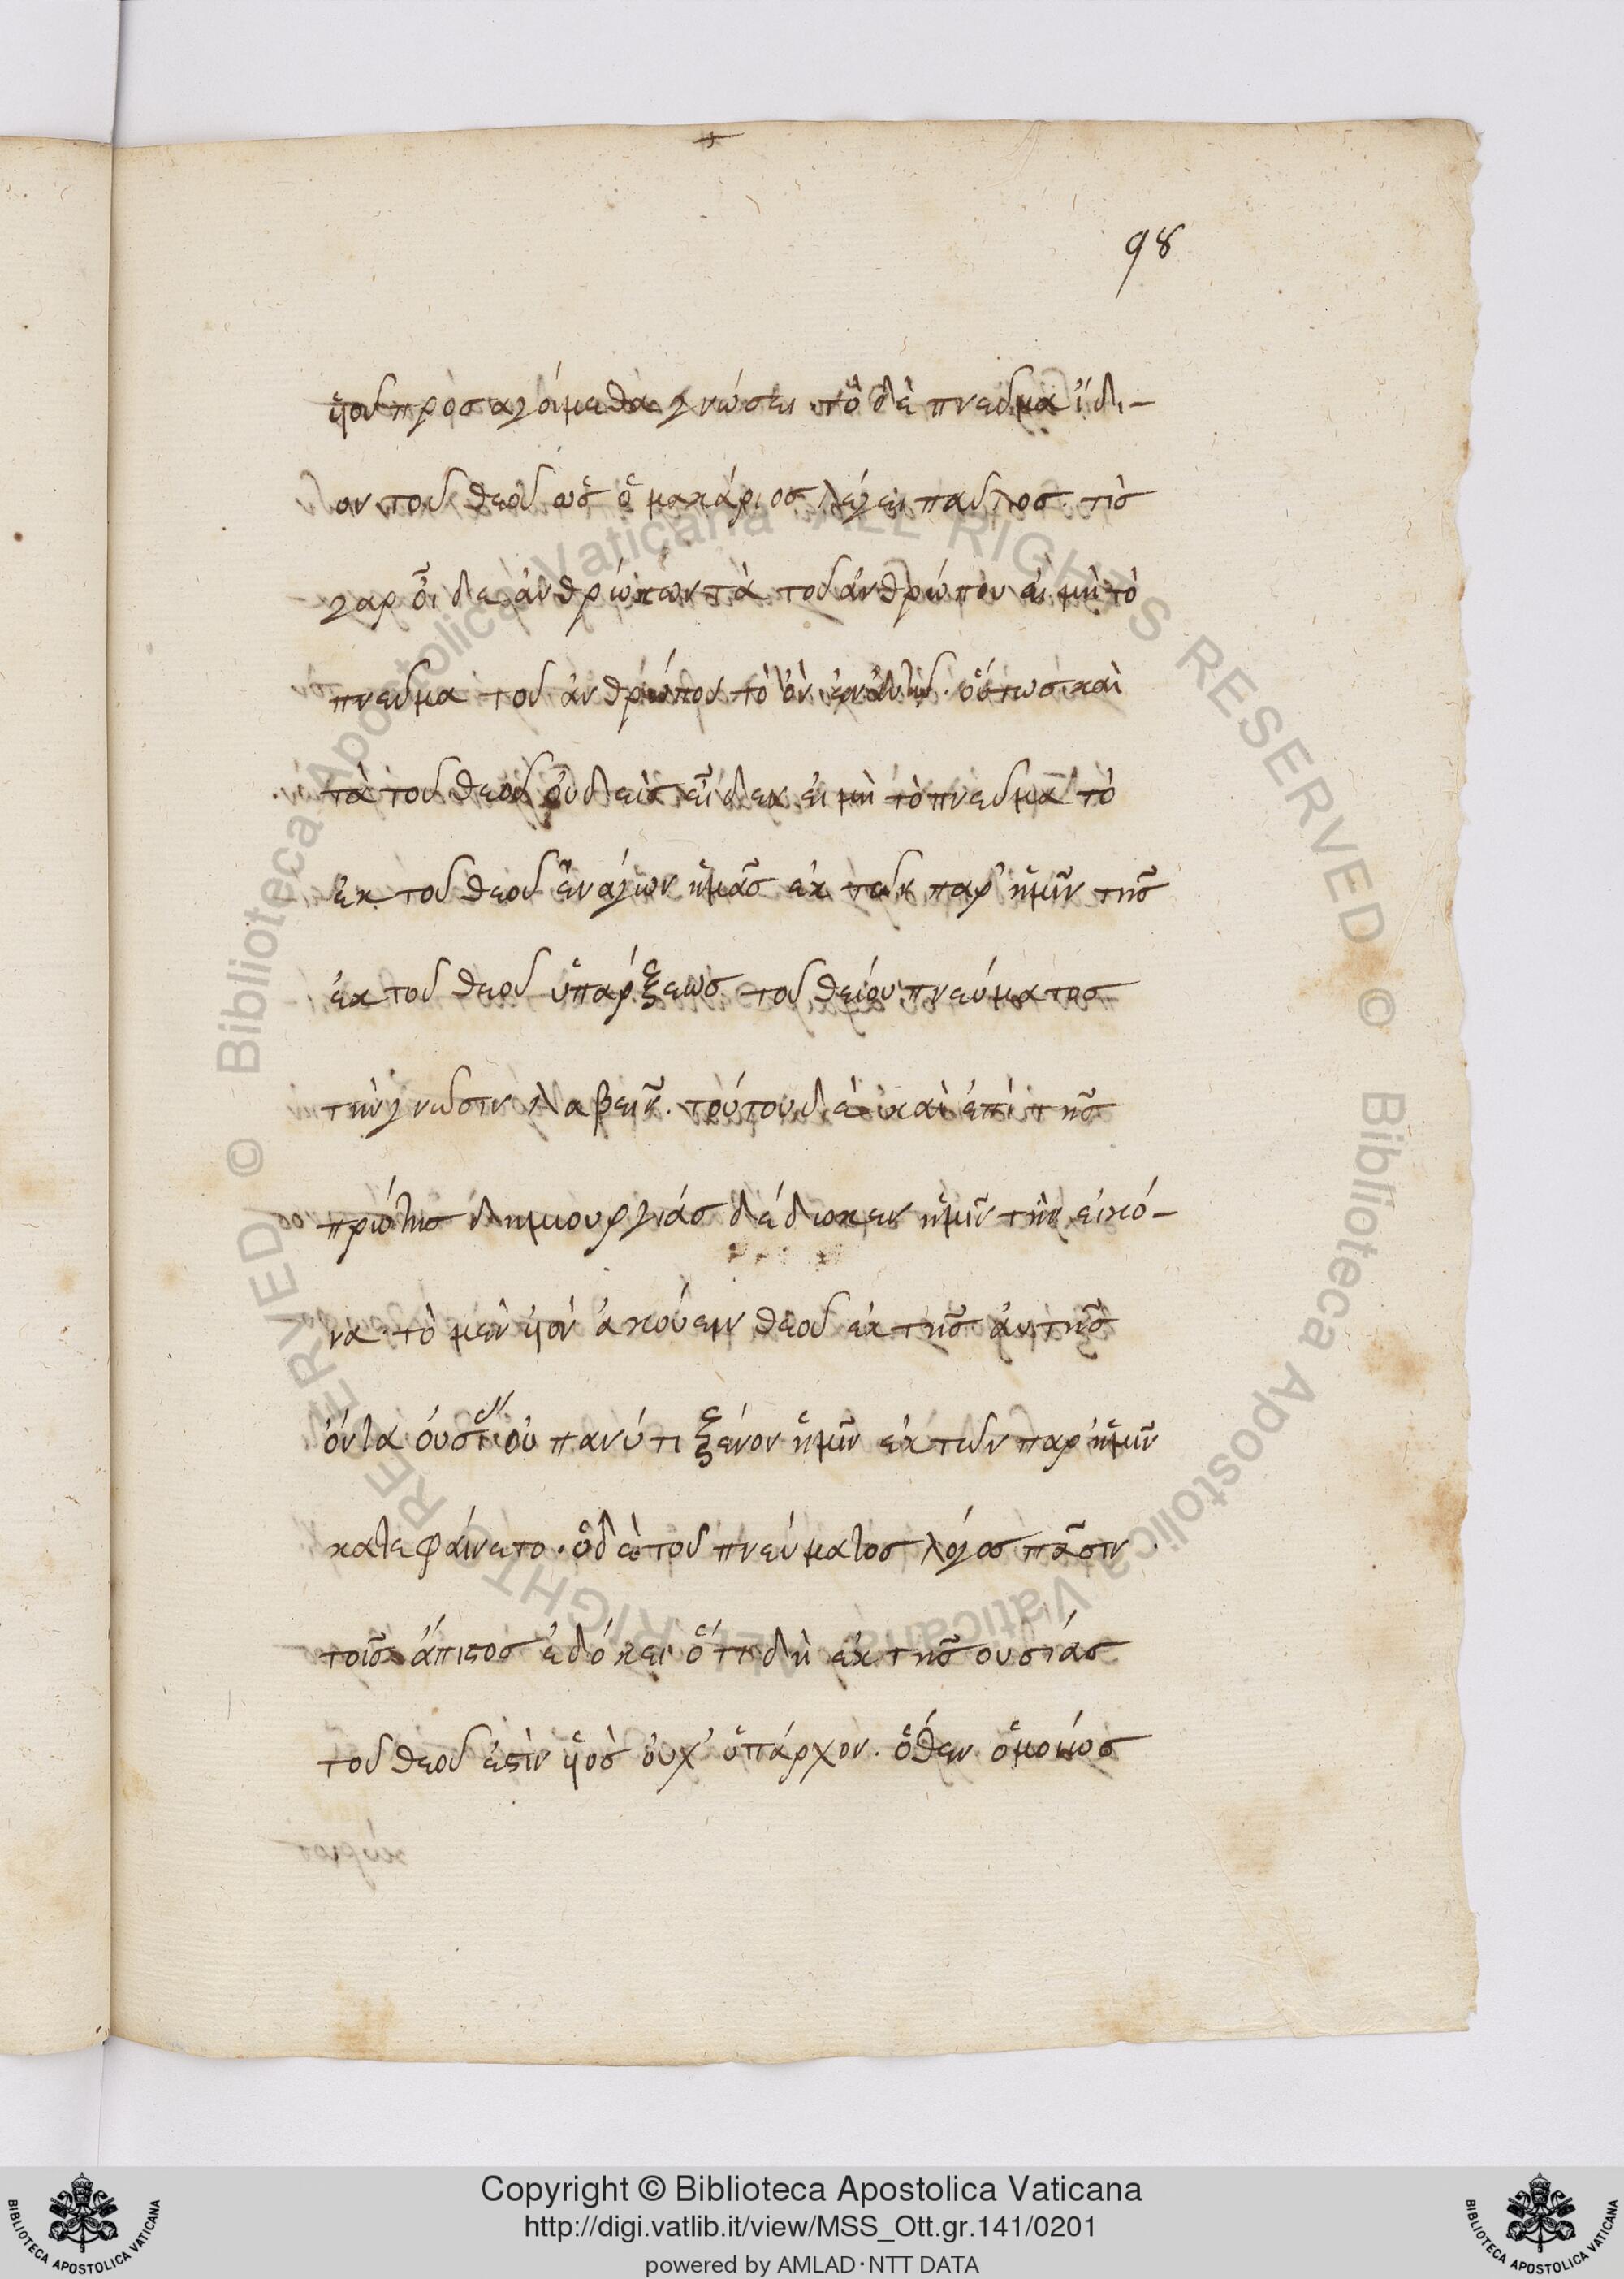 98
ὑιοῦ προσαγόιμεθα γνώσει· τὸ δὲ πνεῦμα ἴδι-
ον τοῦ θεοῦ ὡς ὁ μακάριος λέγει παῦλος· τὶς
γαρ οἶδε ἀνθρώπων τὰ τοῦ ἀνθρώπου ἐι μὴ τὸ
πνεῦμα τοῦ ἀνθρώπου τὸ ὂν ἐν ἀυτῷ· οὕτως καὶ
τὰ τοῦ θεοῦ ὀυδεὶς εἶδεν ἐι μὴ τὸ πνεῦμα τὸ
ἐκ τοῦ θεοῦ ἐνάγων ἡμᾶς ἐκ τῶν παρ' ἡμῖν τῆς
ἐκ τοῦ θεοῦ ὑπάρξεως τοῦ θείου πνεύματος
τὴν γνῶσιν λαβεῖν. τούτου δὲ καὶ ἐπὶ τῆς
πρώτης δημιουργιάς δέδωκεν ἡμῖν τὴν εἰκό-
να· τὸ μὲν ὑιὸν ἀκούειν θεοῦ ἐκ τῆς ἀυτῆς
ὄντα ὀυσι ὀυ πανύτι ξένον ἡμῖν ἐκ τῶν παρ' ἡμῖν
κατεφάινετο. ὁ δὲ τοῦ πνεύματος λόγος πᾶσιν
τοῖς ἄπιστος ἐδόκει ὅτι δὴ ἐκ τῆς ουσιάς
τοῦ θεοῦ ἐστὶν ὑιὸς ὀυχ' ὑπάρχον. ὅθεν ὁμοίως
Copyright © Biblioteca Apostolica Vaticana
http://digi.vatlib.it/view/MSS_Ott.gr.141/0201
powered by AMLAD·NTT DATA
BIBLIOTECA APOSTOLICA VATICANA
BIBLIOTECA APOSTOLICA VATICANA
Biblioteca Apostolica Vaticana ALL RIGHTS RESERVED © Biblioteca Apostolica Vaticana ALL RIGHTS RESERVED ©